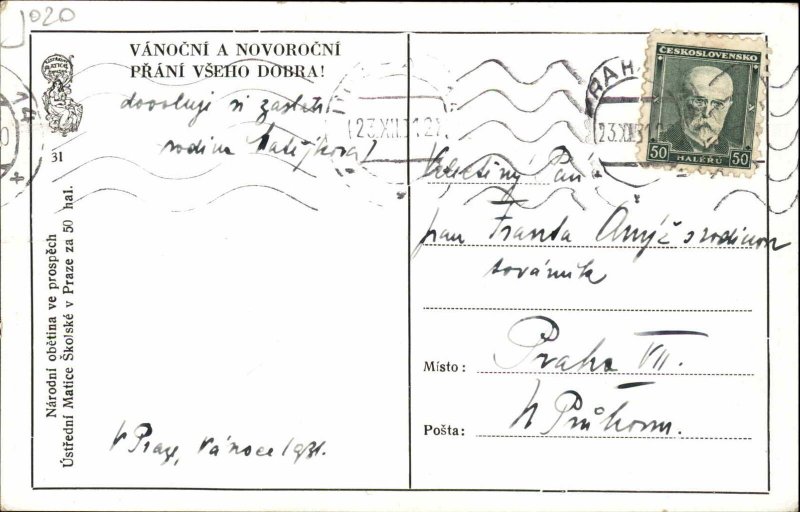 J020
VÁNOČNÍ A NOVOROČNÍ
PŘÁNÍ VŠEHO DOBRA!
dovoluje si zaslati
rodina
31
Národní obětina ve prospěch
Ústřední Matice Školské v Praze za 50 hal.
V Praze, Vánoce 1931.
23.XII.31.12
PRAHA
23.XII.31
ČESKOSLOVENSKO
50 HALÉŘŮ 50
Pán
pan Franta s rodinou
továrník
Místo: Praha VII.
Pošta: